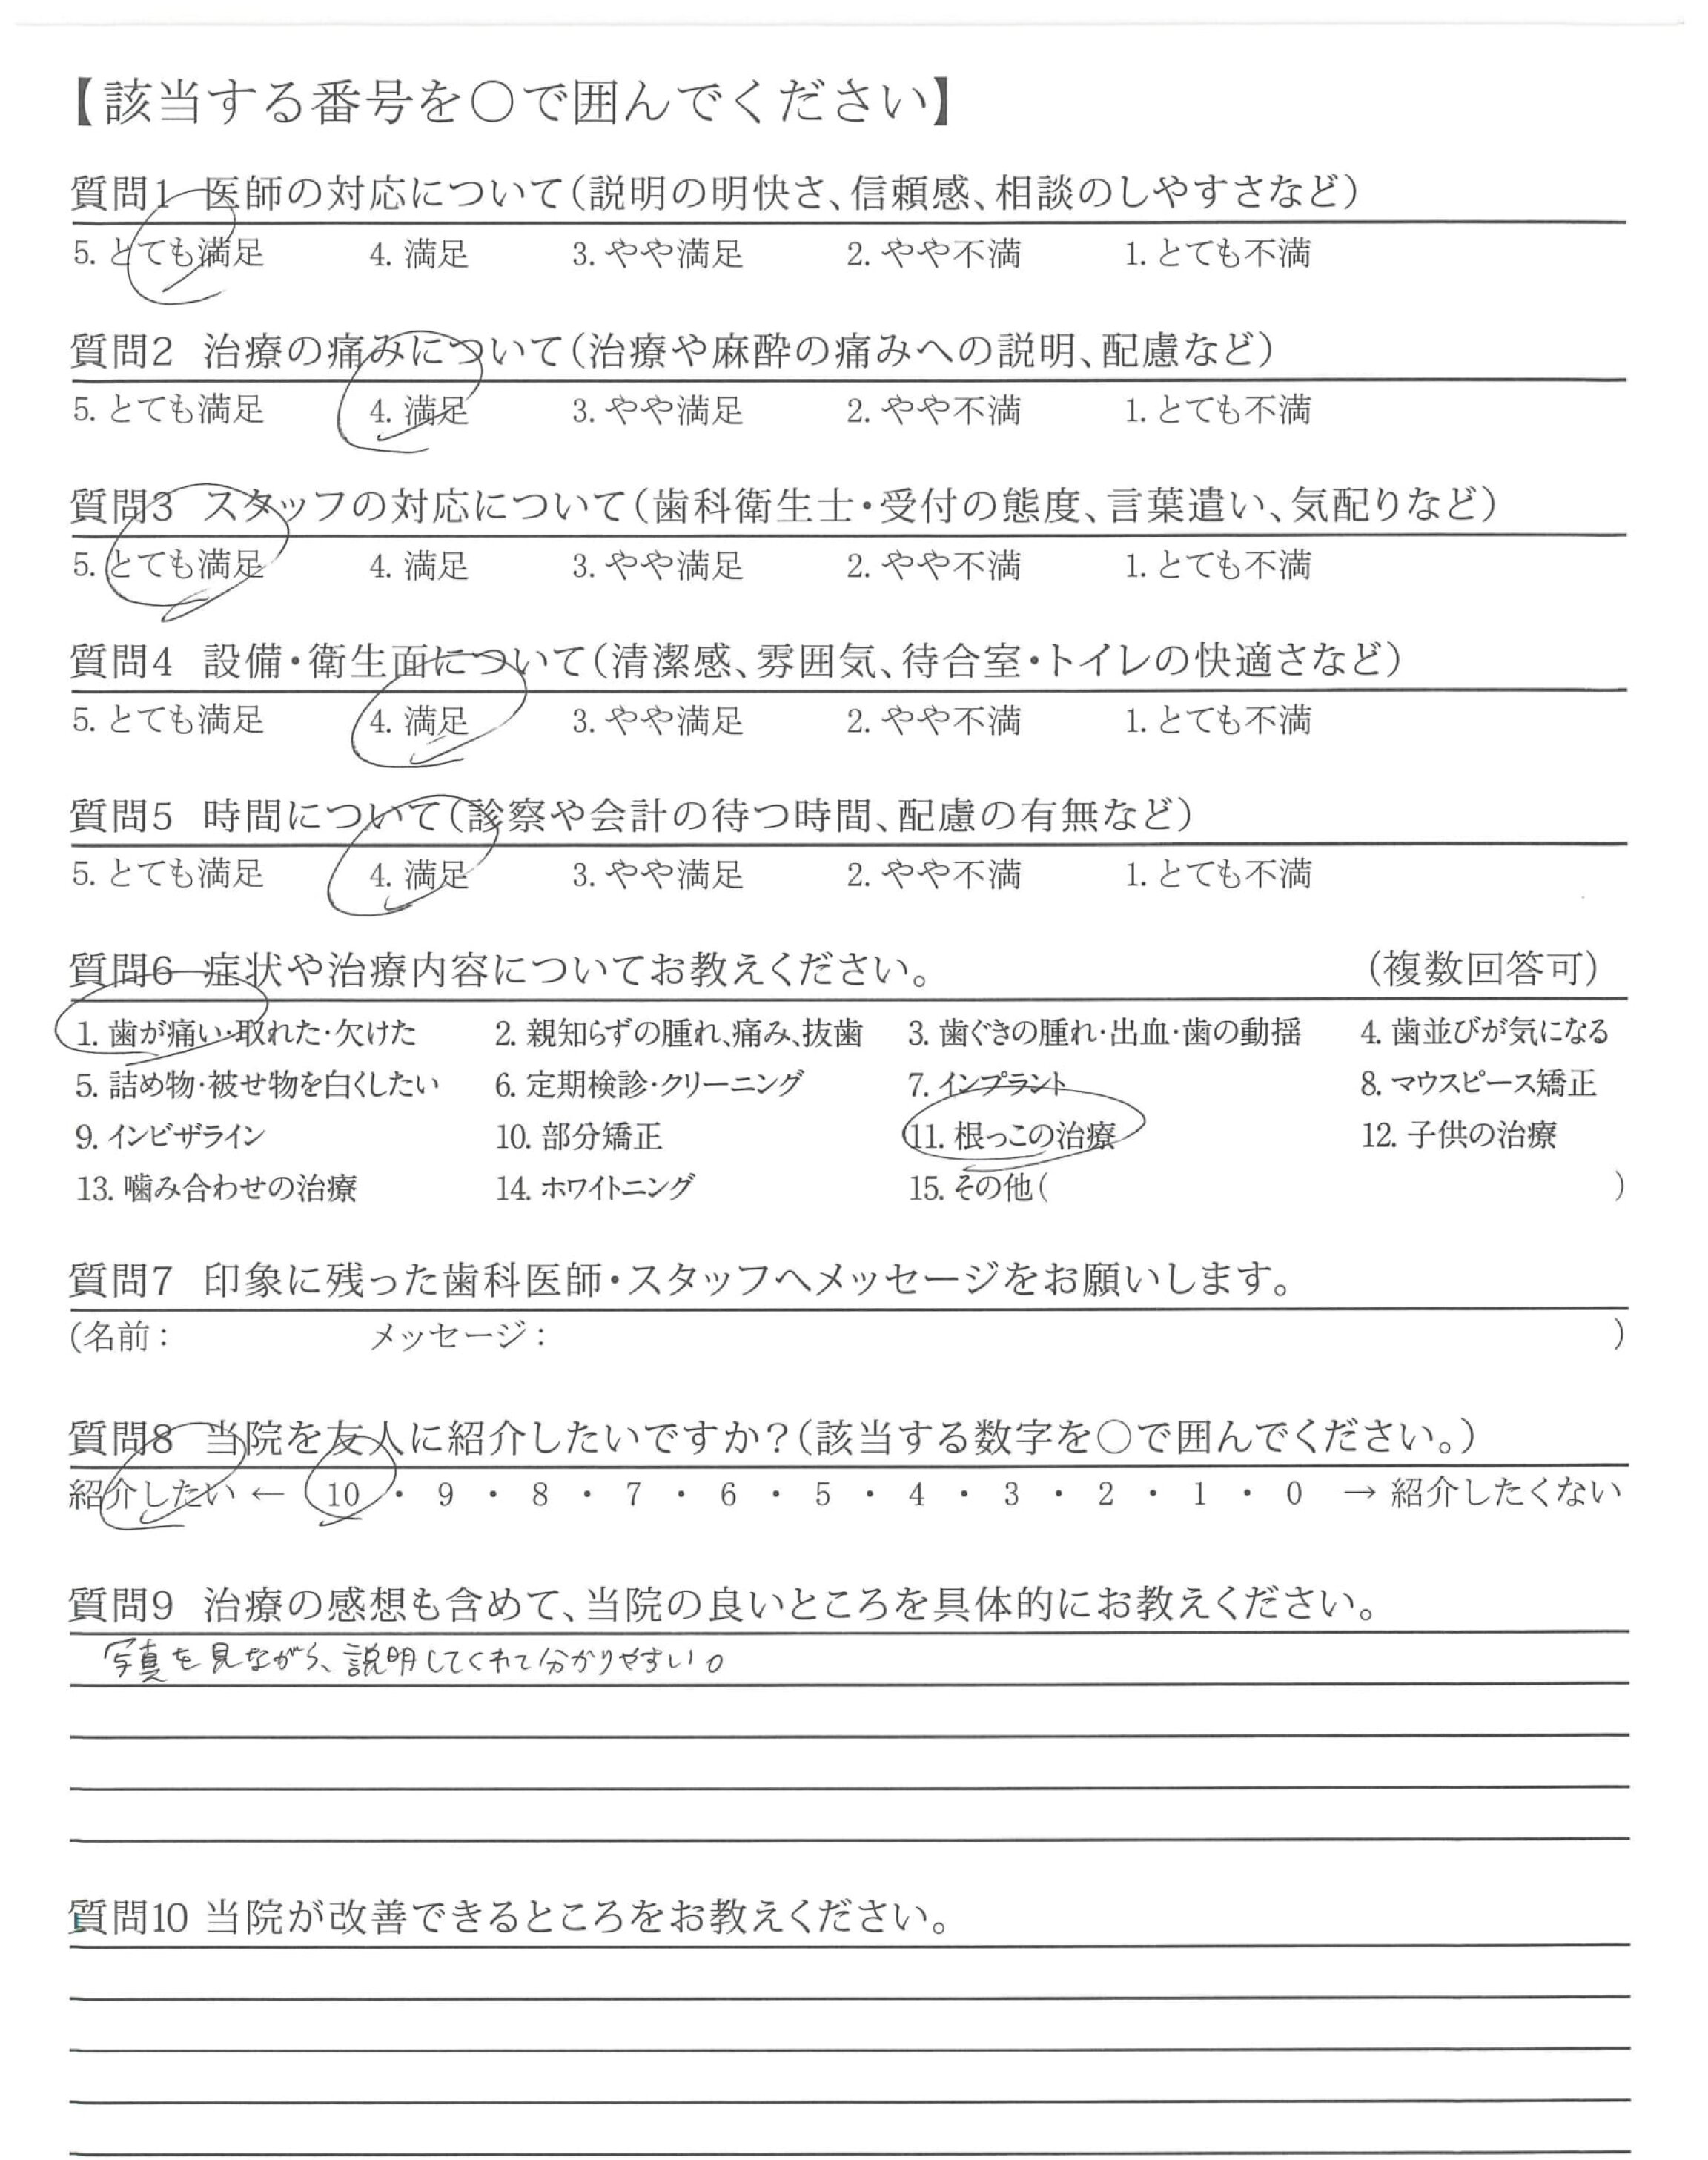 【該当する番号を○で囲んでください】
質問1 医師の対応について（説明の明快さ、信頼感、相談のしやすさなど）
5. とても満足 4. 満足 3. やや満足 2. やや不満 1. とても不満
質問2 治療の痛みについて（治療や麻酔の痛みへの説明、配慮など）
5. とても満足 4. 満足 3. やや満足 2. やや不満 1. とても不満
質問3 スタッフの対応について（歯科衛生士・受付の態度、言葉遣い、気配りなど）
5. とても満足 4. 満足 3. やや満足 2. やや不満 1. とても不満
質問4 設備・衛生面について（清潔感、雰囲気、待合室・トイレの快適さなど）
5. とても満足 4. 満足 3. やや満足 2. やや不満 1. とても不満
質問5 時間について（診察や会計の待つ時間、配慮の有無など）
5. とても満足 4. 満足 3. やや満足 2. やや不満 1. とても不満
質問6 症状や治療内容についてお教えください。 （複数回答可）
1. 歯が痛い・取れた・欠けた 2. 親知らずの腫れ、痛み、抜歯 3. 歯ぐきの腫れ・出血・歯の動揺 4. 歯並びが気になる
5. 詰め物・被せ物を白くしたい 6. 定期検診・クリーニング 7. インプラント 8. マウスピース矯正
9. インビザライン 10. 部分矯正 11. 根っこの治療 12. 子供の治療
13. 噛み合わせの治療 14. ホワイトニング 15. その他（ ）
質問7 印象に残った歯科医師・スタッフへメッセージをお願いします。
（名前： メッセージ： ）
質問8 当院を友人に紹介したいですか？（該当する数字を○で囲んでください。）
紹介したい ← 10 ・ 9 ・ 8 ・ 7 ・ 6 ・ 5 ・ 4 ・ 3 ・ 2 ・ 1 ・ 0 → 紹介したくない
質問9 治療の感想も含めて、当院の良いところを具体的にお教えください。
写真を見ながら、説明してくれて分かりやすい。
質問10 当院が改善できるところをお教えください。